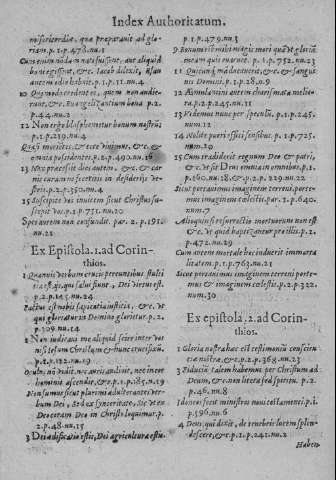 Index Authoritatum.
misericordiæ, quæ præparauit ad glo-
riam. p.1.p.478.nu.1
Cum enim nondum nati fuissent, aut aliquid
boni egissent, &c. Iacob dilexit, Esau
autem odio habui. p.1.p.151.nu.4
10 Quomodo credent ei, quem non audie-
runt, &c. Euangelizantium bona p.2.
p.44.nu.2
12 Non ergo blasphemetur bonum nostrũ;
p.1.p.219.nu.4
Quasi morietes, & ecce viuimus, &c. &
omnia possidentes. p.2.p.490.nu.16
13 Nox præcessit dies autem, &c. & car-
nis curam ne feceritis in desiderijs ve-
stris. p.2.p.350.nu.4
15 Suscipite vos inuicem sicut Christus su-
scepit vos. p.1.p.751.nu.20
Spes autem non confundit par.2.p.151.
nu.21
Ex Epistola.1.ad Corin-
thios.
1 Quoniam verbum crucis pereuntibus stulti
tia est, ijs, qui salui fiunt, Dei virtus est.
p.2.p.145.nu.24
Factus est nobis sapientia iustitia, &c. vt
qui gloriatur in Domino glorietur. p.2.
p.309.nu.14
2 Non iudicaui me aliquid scire inter vos
nisi Iesum Christum & hunc crucifixũ.
p.2.p.132.nu.19
Oculus nõ vidit, nec auris audiuit, nec in cor
hominis ascendit, &c. p.1.p.185.n.19
Non sumus sicut plurimi adulterantes ver-
bum Dei, sed ex synceritate, sic vt ex
Deo coram Deo in Christo loquimur. p.
2.p.48.nu.15
3 Dei ædificatio estis, Dei agricultura estis.
p.1.p.479.nu.3
9 Bonum est mihi magis mori quã vt gloriã
meam quis euacuet. p.1.p.752.nu.23
11 Quicunq; manducauerit, &c. & sangui-
nis Domini. p.1.p.28.0.9
12 Aemulamini autem charismata melio-
ra. p.2.p.245.nu.11
13 Videmus nunc per speculũ. p.1.p.245.
num.12
14 Nolite pueri effici sensibus. p.1.p.725.
num.20
15 Cum tradiderit regnum Deo & patri,
&c. vt sit Deus omnia in omnibus. p.1.
p.660.nu.18.& p.2.p.229.nu.22
Sicut portauimus imaginem terreni, porte-
mus imaginem cœlestis. par.1.p.640.
num.7
Alioquin si resurrectio mortuorum non est
&c. vt quid baptizantur pro illis. p.2.
p.472.nu.29
Cum autem mortale hoc induerit immorta
litatem. p.1.p.763.nu.21
Sicut portauimus imaginem terreni porte-
mus & imaginem cœlestis. p.2.p.322.
num.30
Ex epistola.2.ad Corin-
thios.
1 Gloria nostra hæc est testimoniũ conscien-
tiæ nostræ, &c. p.2.p.368.nu.23
3 Fiduciã talem habemus per Christum ad
Deum, &c. non litera sed spiritu. p.2.
p.46.nu.8
Idoneos fecit ministros noui testamenti. p.1.
p.596.nu.6
4 Deus, qui dixit, de tenebris lucem splen-
descere, &c. p.2.p.241.nu.2
Haben-